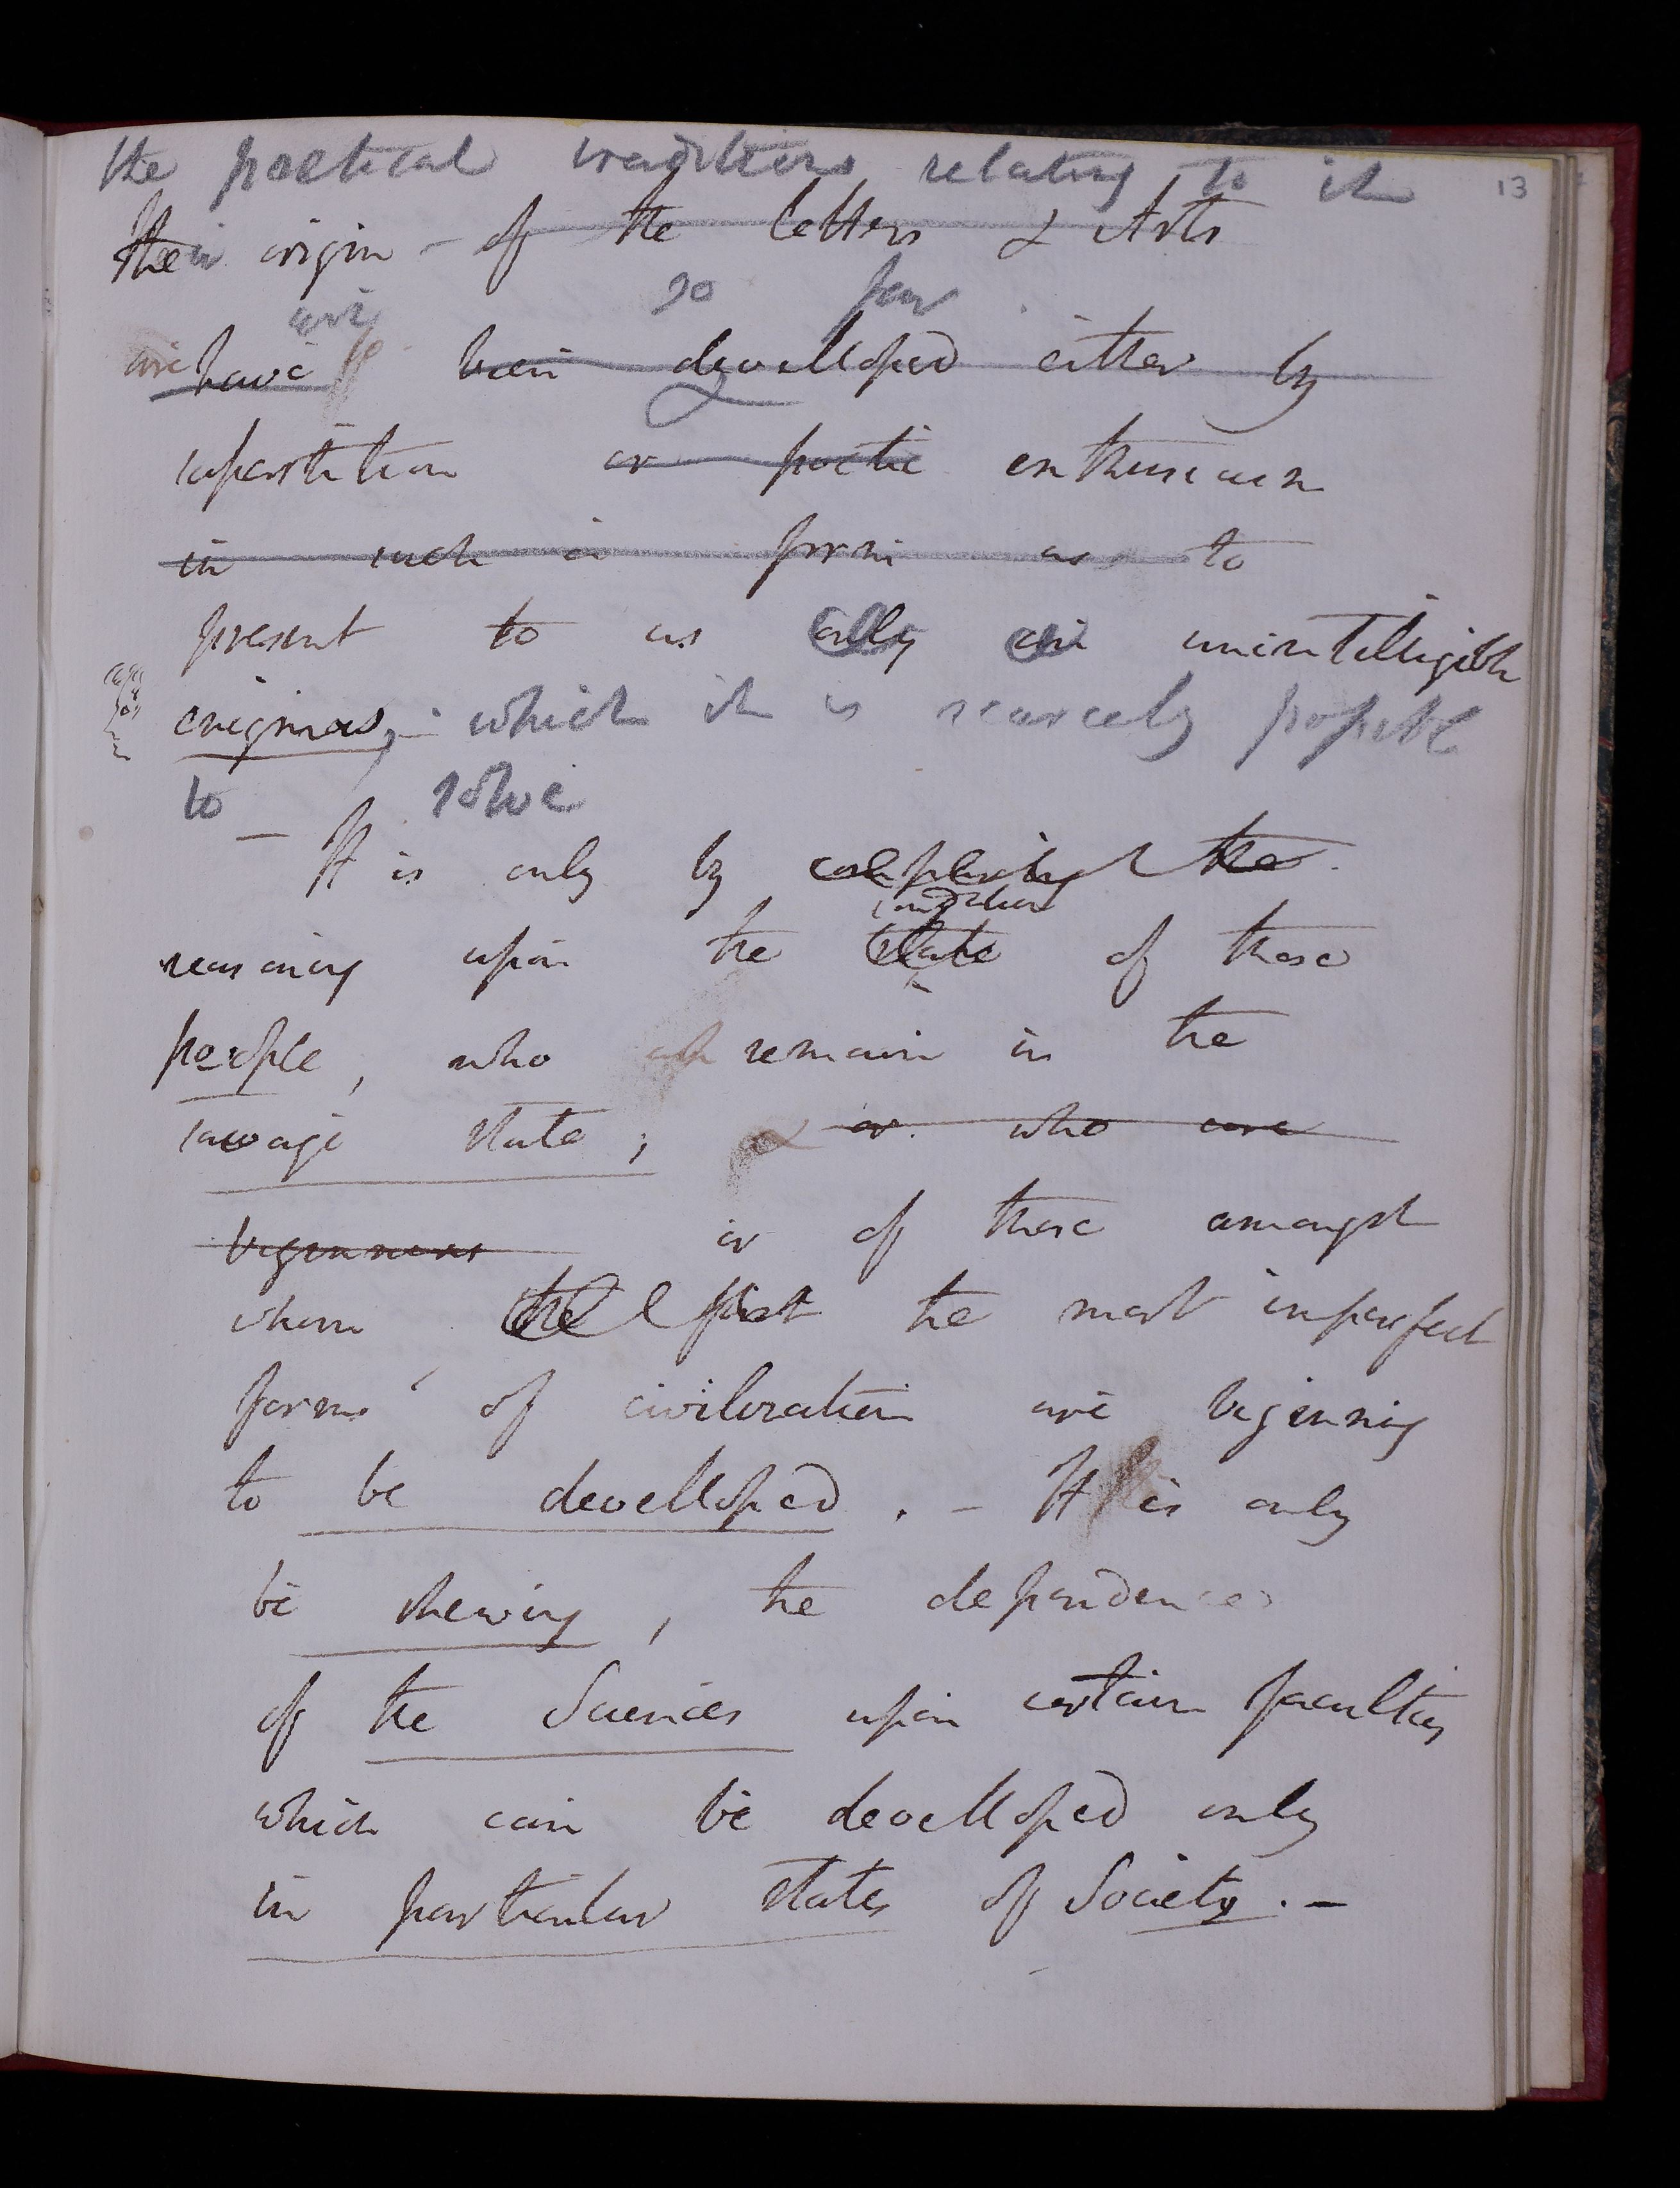 the poetical traditions relating to it
13
their origin - of the letters & Arts
are so few
are have been develloped either by
superstition or poetic enthusiasm
in such a form as to
present to us only an unintelligible
enigmas, - which it is scarcely possible
to solve
- It is only by the
condition
reasoning upon the state of those
people, who remain in the
savage state; & or who are
beginning or of those amongst
whom the first the most imperfect
forms of civilization are beginning
to be develloped. - It is only
be shewing, the dependence
of the Sciences upon certain faculties
which can be develloped only
in particular states of Society. -